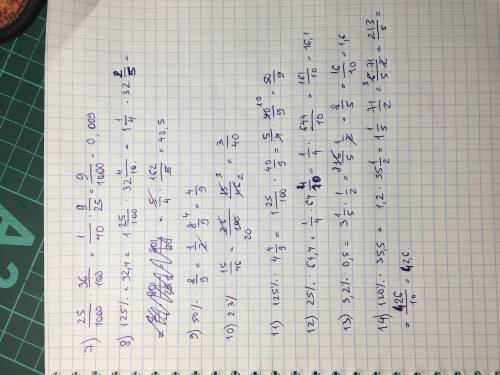 7) 25/1000 · 36/100 = 1/40 · 9/25 = 9/1000 = 0,009
8) 125% · 32,4 = 1 25/100 · 32 4/10 = 1 1/4 · 32 2/5 =
= 5/4 · 162/5 = 40,5
9) 50% · 8/9 = 1/2 · 8/9 = 4/9
10) 2.3) 15/46 = 23/100 · 15/46 = 3/40
11) 125% · 4 4/9 = 1 25/100 · 40/9 = 5/4 · 40/9 = 50/9
12) 25% · 64,4 = 1/4 · 64 4/10 = 1/4 · 644/10 = 161/10 = 16,1
13) 3,2% · 0,5 = 3 1/5 · 1/2 = 16/5 · 1/2 = 8/5 = 16/10 = 1,6
14) 120% · 35,5 = 1,2 · 35 1/2 = 1 1/5 · 71/2 = 6·71/5·2 = 213/5 =
= 426/10 = 42,6